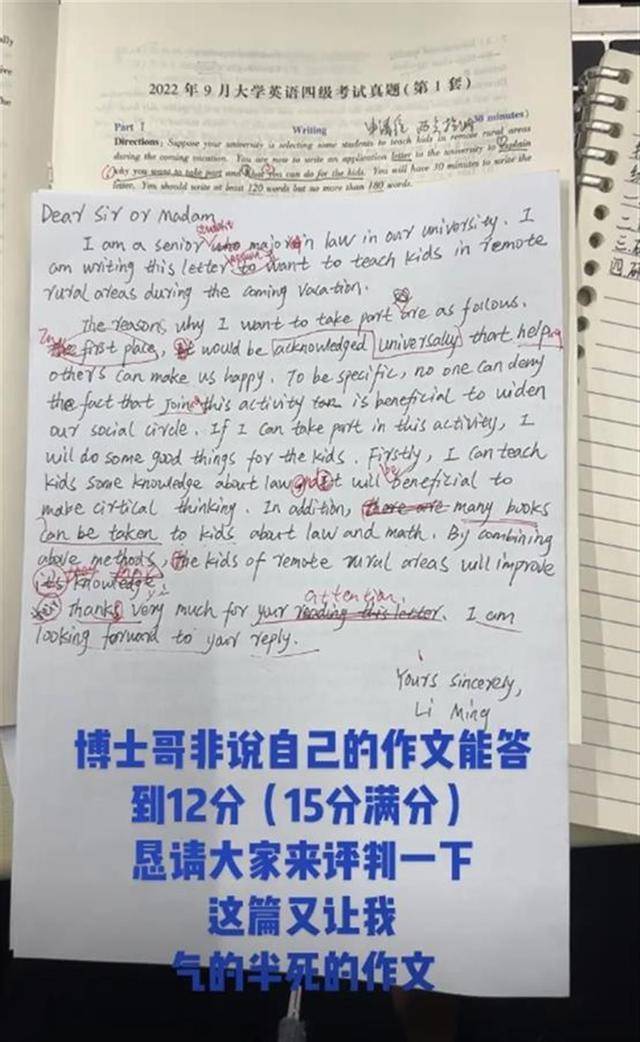 2022年9月大学英语四级考试真题(第1套)
Part I Writing (30 minutes)
Directions: Suppose your university is selecting some students to teach kids in remote rural areas
during the coming vacation. You are now to write an application letter to the university to explain
why you want to take part and what you can do for the kids. You will have 30 minutes to write the
letter. You should write at least 120 words but no more than 180 words.
Dear Sir or Madam,
student
I am a senior who major in law in our university. I
am writing this letter to want to teach kids in remote
rural areas during the coming vacation.
The reasons why I want to take part are as follows.
In
the first place, it would be acknowledged universally that helping
others can make us happy. To be specific, no one can deny
the fact that joining this activity is beneficial to widen
our social circle. If I can take part in this activity, I
will do some good things for the kids. Firstly, I can teach
be
kids some knowledge about law and it will beneficial to
make cirtical thinking. In addition, there are many books
can be taken to kids about law and math. By combining
above methods, the kids of remote rural areas will improve
its knowledge.
attention.
Thanks very much for your reading this letter. I am
looking forward to your reply.
Yours sincerely,
Li Ming
博士哥非说自己的作文能答
到12分(15分满分)
恳请大家来评判一下
这篇又让我
气的半死的作文
二
三
四